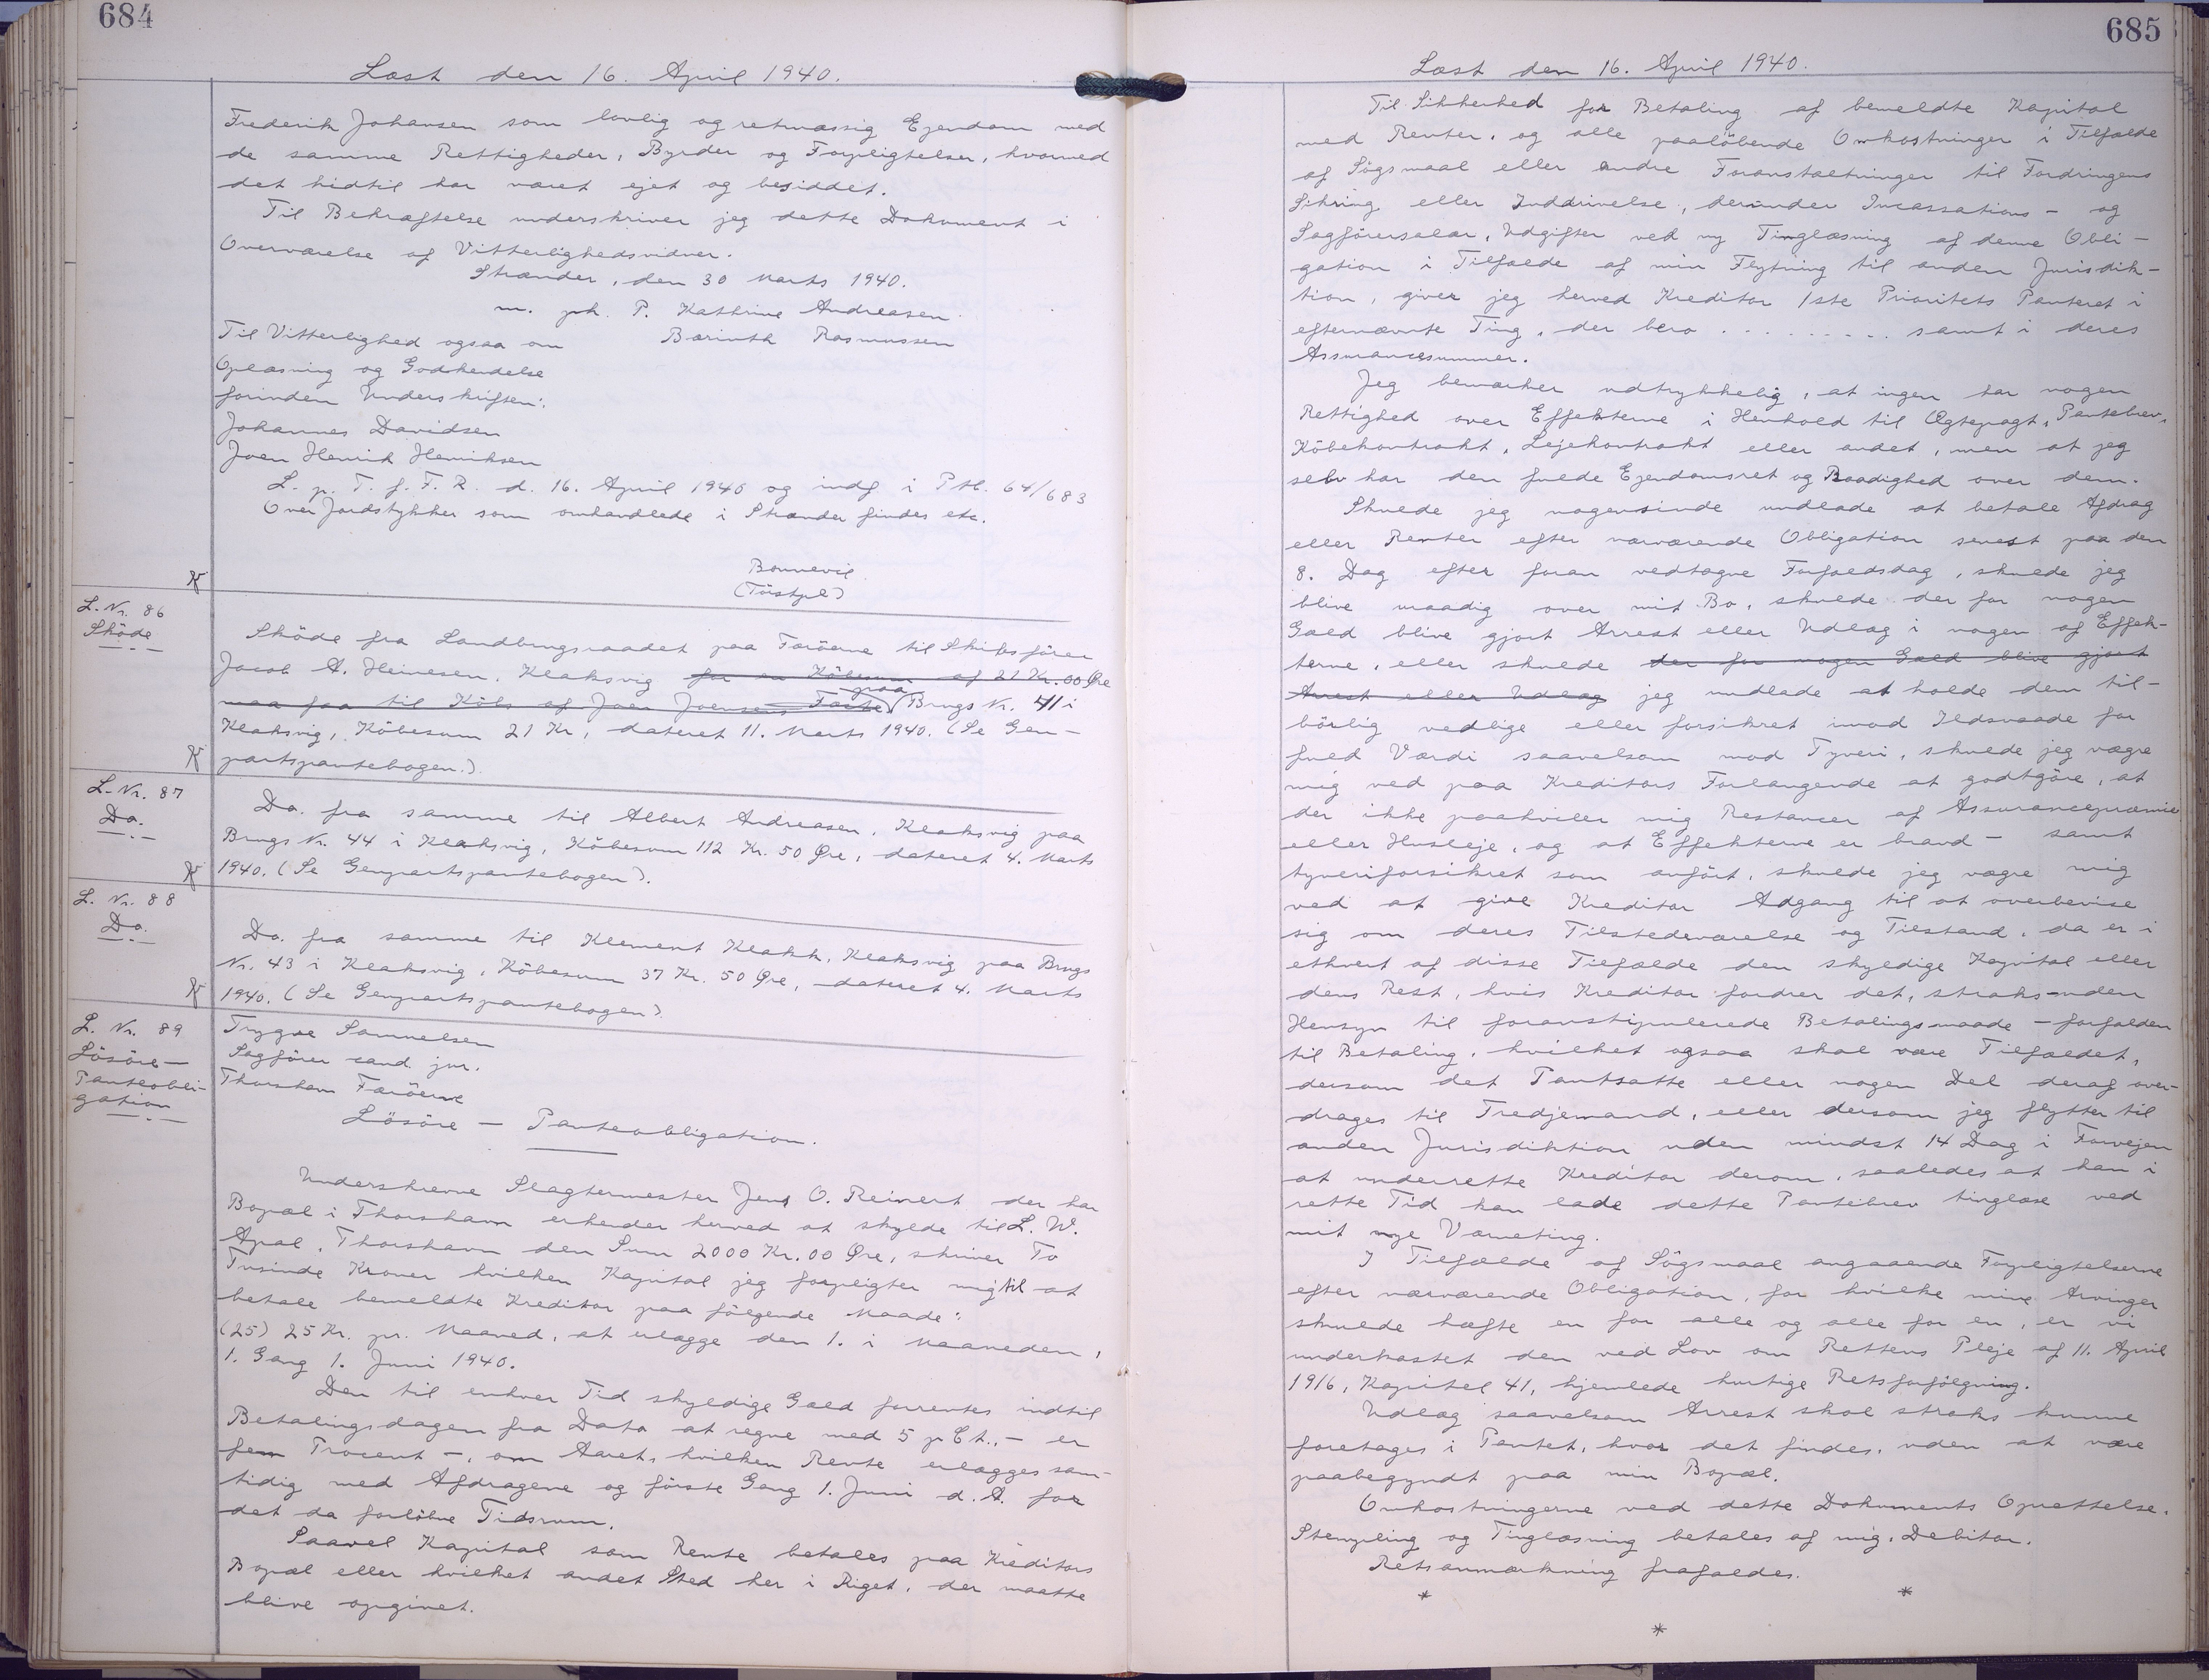 684
Læst den 16. April 1940.
Frederik Johansen som lovlig og retmæssig Ejendom med
de samme Rettigheder, Byrder og Forpligtelser, hvormed
det hidtil har været ejet og besiddet.
Til Bekræftelse underskriver jeg dette Dokument i
Overværelse af Vitterlighedsvidner.
Strænder, den 30 Marts 1940.
m. p. P. Kathrine Andreasen
Til Vitterlighed ogsaa om Barinth Rasmussen
Oplæsning og Godkendelse
forinden Underskriften:
Johannes Davidsen
Joen Henrik Henriksen
L. p. T. f. F. R. d. 16. April 1940 og indf i Ptb. 64/683
Over Jordstykker som omhandlede i Strænder findes etc.
Bonnevie
(Töstpl)
K
L. Nr. 86
Sköde
Sköde fra Landbrugsraadet paa Færöerne til Skibsförer
Jacob A. Heinesen, Klaksvig for en Köbesum af 21 Kr. 00 Øre
maa faa til Köbs af Joen Joensens Fæste paa Brugs Nr. 41 i
Klaksvig, Köbesum 21 Kr, dateret 11. Marts 1940. (Se Gen-
partspantebogen.)
K
L. Nr. 87
Do.
Do. fra samme til Albert Andreasen, Klaksvig paa
Brugs Nr. 44 i Klaksvig, Köbesum 112 Kr. 50 Øre, dateret 4. Marts
1940. (Se Genpartspantebogen).
K
L. Nr. 88
Do.
Do. fra samme til Klement Klakk, Klaksvig paa Brugs
Nr. 43 i Klaksvig, Köbesum 37 Kr. 50 Øre, dateret 4. Marts
1940. (Se Genpartspantebogen)
K
L. Nr. 89
Lösöre-
Panteobli-
gation
Trygve Samuelsen
Sagförer cand. jur.
Thorshavn Færöerne
Lösöre - Panteobligation.
Underskrevne Slagtermester Jens O. Reinert der har
Bopæl i Thorshavn erkender herved at skylde til L. W.
Apol, Thorshavn den Sum 2000 Kr. 00 Øre, skriver To
Tusinde Kroner hvilken Kapital jeg forpligter mig til at
betale bemeldte Kreditor paa følgende Maade:
(25) 25 Kr. pr. Maaned, at erlægge den 1. i Maaneden,
1. Gang 1. Juni 1940.
Den til enhver Tid skyldige Gæld forrentes indtil
Betalingsdagen fra Dato at regne med 5 p Ct., - er
fem Procent -, om Aaret, hvilken Rente erlægges sam-
tidig med Afdragene og förste Gang 1. Juni d. A. for
det da forlöbne Tidsrum.
Saavel Kapital som Rente betales paa Kreditors
Bopæl eller hvilket andet Sted her i Riget, der maatte
blive opgivet.
685
Læst den 16. April 1940.
Til Sikkerhed for Betaling af bemeldte Kapital
med Renter, og alle paalöbende Omkostninger i Tilfælde
af Sögsmaal eller andre Foranstaltninger til Fordringens
Sikring eller Inddrivelse, derunder Incassations- og
Sagförersalær, Udgifter ved ny Tinglæsning af denne Obli-
gation i Tilfælde af min Flytning til anden Jurisdik-
tion, giver jeg herved Kreditor 1ste Prioritets Panteret i
efternævnte Ting, der bero ......... samt i deres
Assurancesummer.
Jeg bemærker udtrykkelig, at ingen har nogen
Rettighed over Effekterne i Henhold til Ægtepagt, Pantebrev,
Köbekontrakt, Lejekontrakt eller andet, men at jeg
selv har den fulde Ejendomsret og Raadighed over dem.
Skulde jeg nogensinde undlade at betale Afdrag
eller Renter efter nærværende Obligation senest paa den
8. Dag efter foran vedtagne Forfaldsdag, skulde jeg
blive uraadig over mit Bo, skulde der for nogen
Gæld blive gjort Arrest eller Udlæg i nogen af Effek-
terne, eller skulde der for nogen Gæld blive gjort
Arrest eller Udlæg jeg undlade at holde dem til-
börlig vedlige eller forsikret imod Ildsvaade for
fuld Værdi saavelsom mod Tyveri, skulde jeg vægre
mig ved paa Kreditors Forlangende at godtgöre, at
der ikke paahviler mig Restancer af Assurancepræmie
eller Husleje, og at Effekterne er brand- samt
tyveriforsikret som anfört, skulde jeg vægre mig
ved at give Kreditor Adgang til at overbevise
sig om deres Tilstedeværelse og Tilstand, da er i
ethvert af disse Tilfælde den skyldige Kapital eller
dens Rest, hvis Kreditor fordrer det, straks uden
Hensyn til foranstipulerede Betalingsmaade - forfalden
til Betaling, hvilket ogsaa skal være Tilfældet,
dersom det Pantsatte eller nogen Del deraf over-
drages til Tredjemand, eller dersom jeg flytter til
anden Jurisdiktion uden mindst 14 Dag i Forvejen
at underrette Kreditor derom, saaledes at han i
rette Tid kan lade dette Pantebrev tinglæse ved
mit nye Værneting.
I Tilfælde af Sögsmaal angaaende Forpligtelserne
efter nærværende Obligation, for hvilke mine Arvinger
skulde hæfte en for alle og alle for en, er vi
underkastet den ved Lov om Rettens Pleje af 11. April
1916, Kapitel 41, hjemlede hurtige Retsforfölgning.
Udlæg saavelsom Arrest skal straks kunne
foretages i Pantet, hvor det findes, uden at være
paabegyndt paa min Bopæl.
Omkostningerne ved dette Dokuments Oprettelse,
Stempling og Tinglæsning betales af mig, Debitor.
Retsanmærkning frafaldes.
* *
*